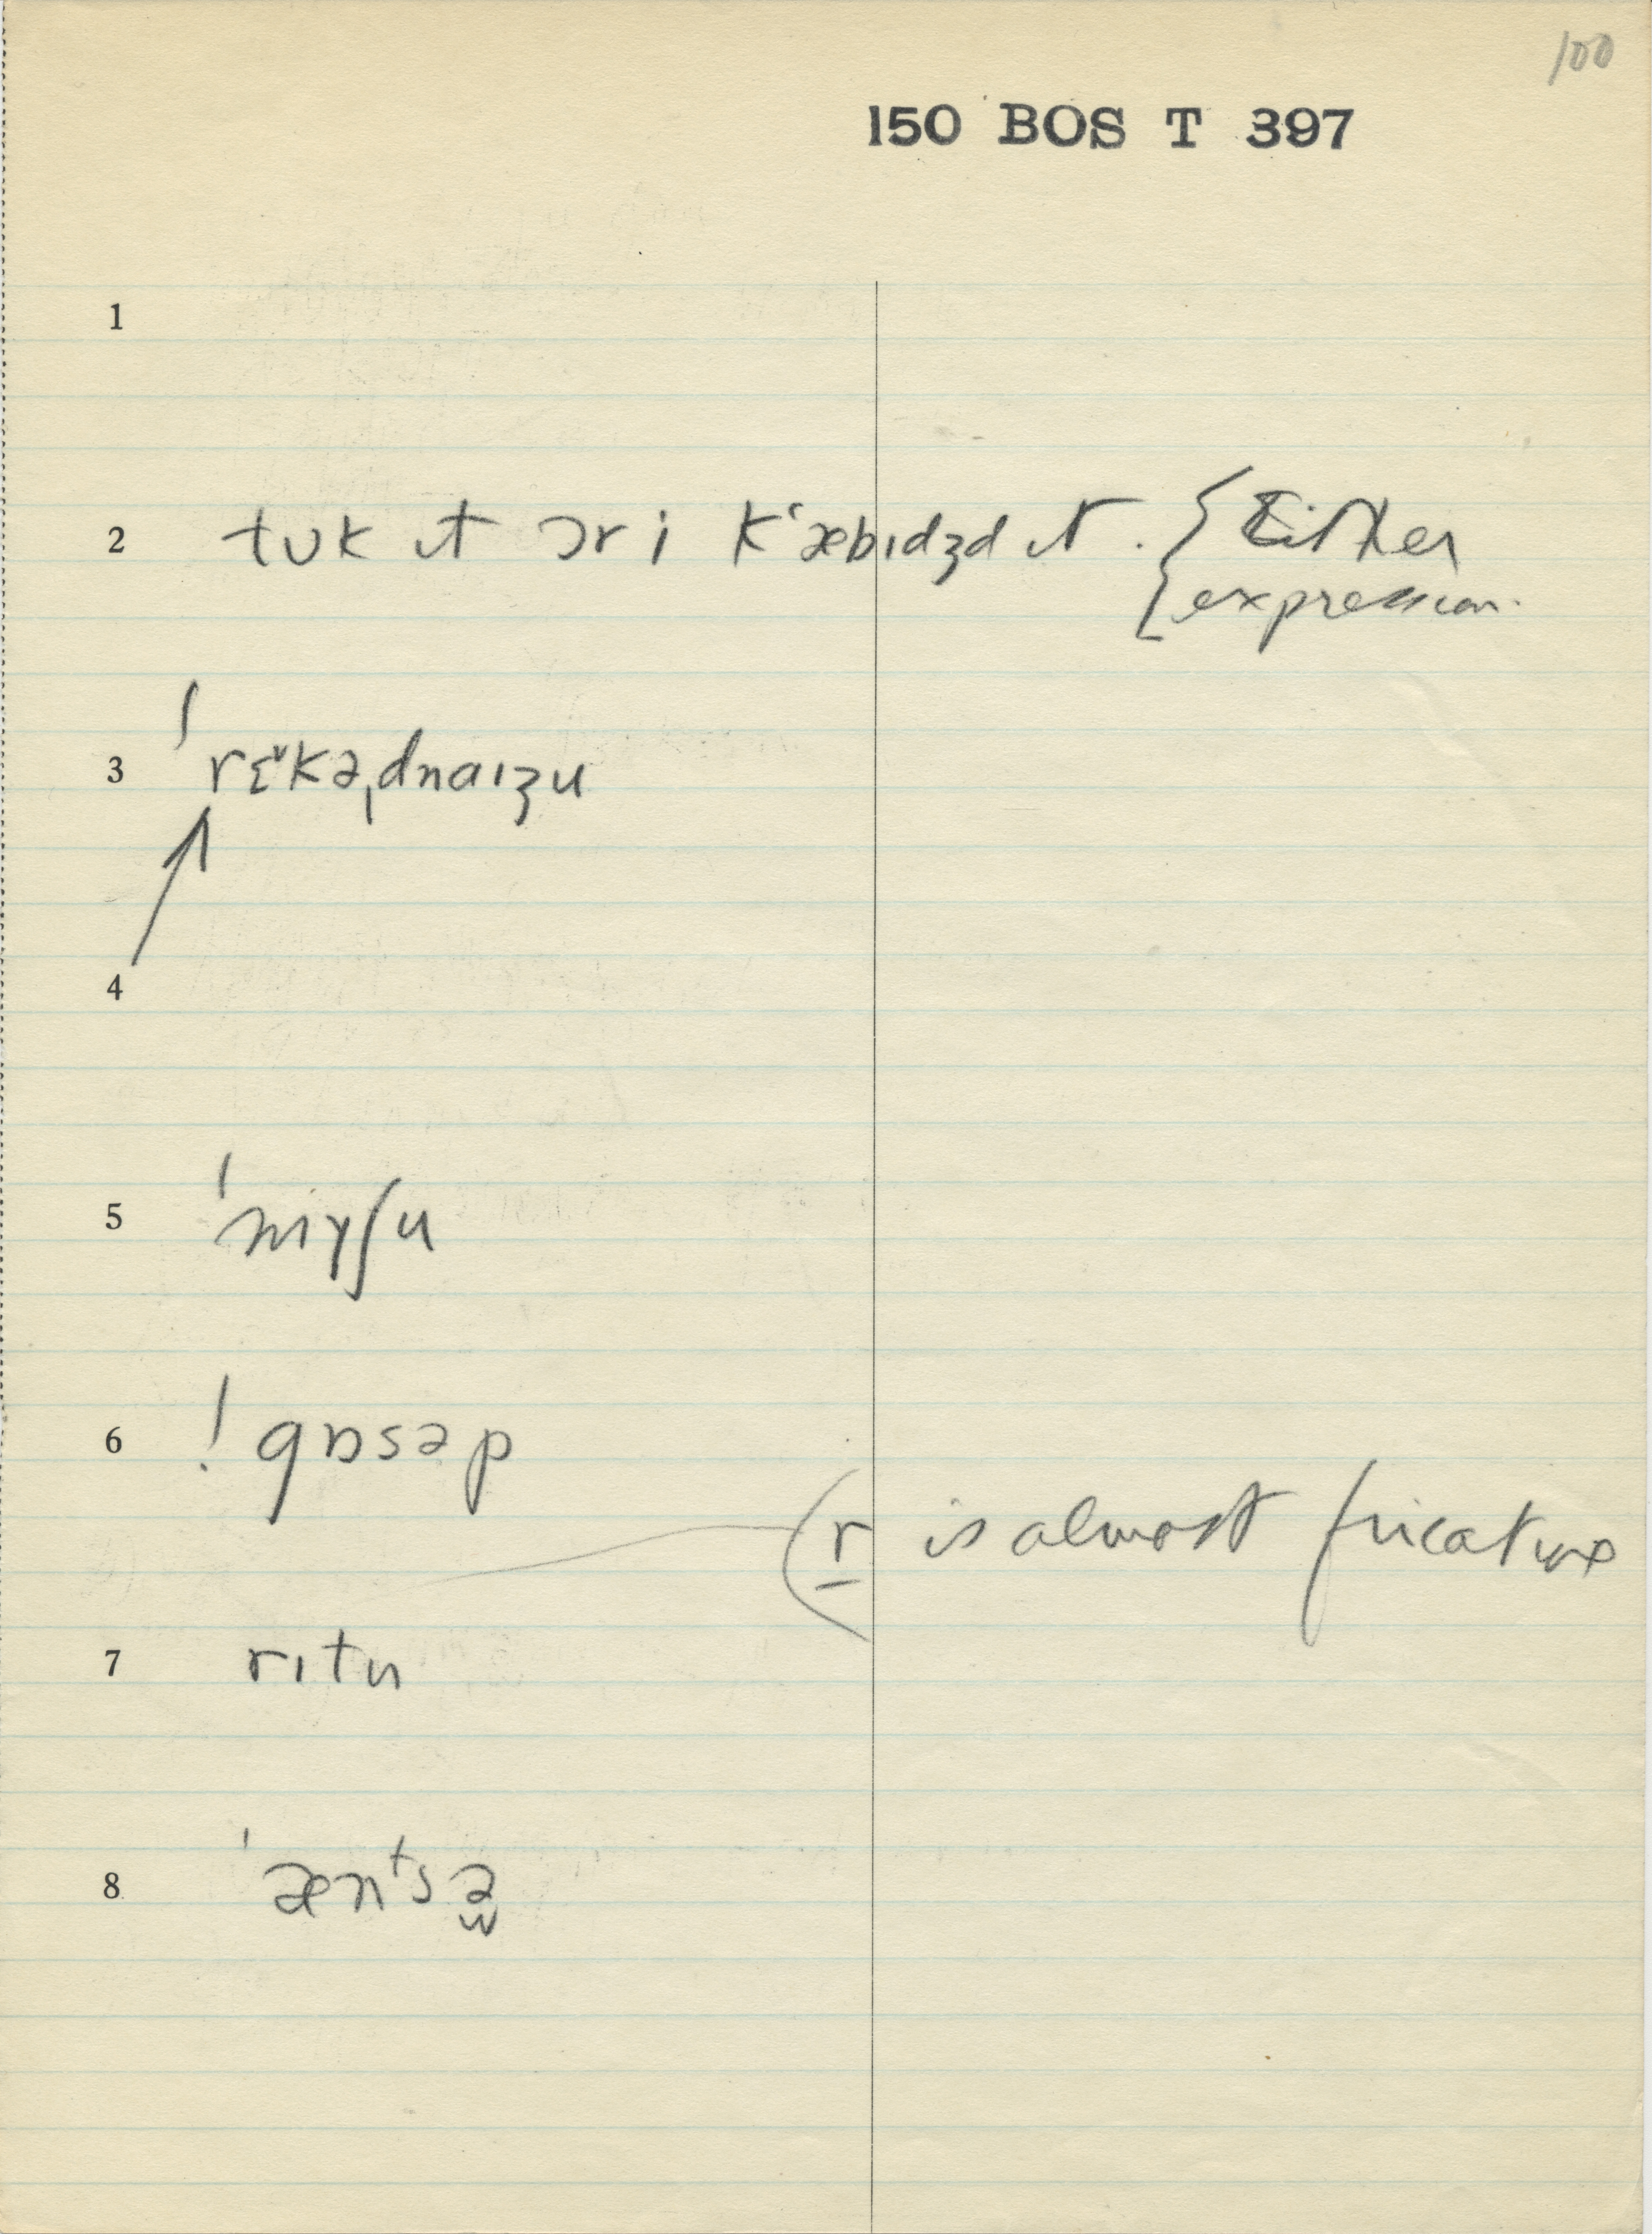 100
150 BOS T 397
1
2 tʊk ɪt ɔr i kʻæbɪdʒd ɪt . { Either
expression.
3 ˈrɛ˅kəˌdnaɪʒu
4
5 ˈmɪɣʃu
6 ! gɒsəp
(r is almost fricative
7 rɪtu
8 ˈænᵗsə̬